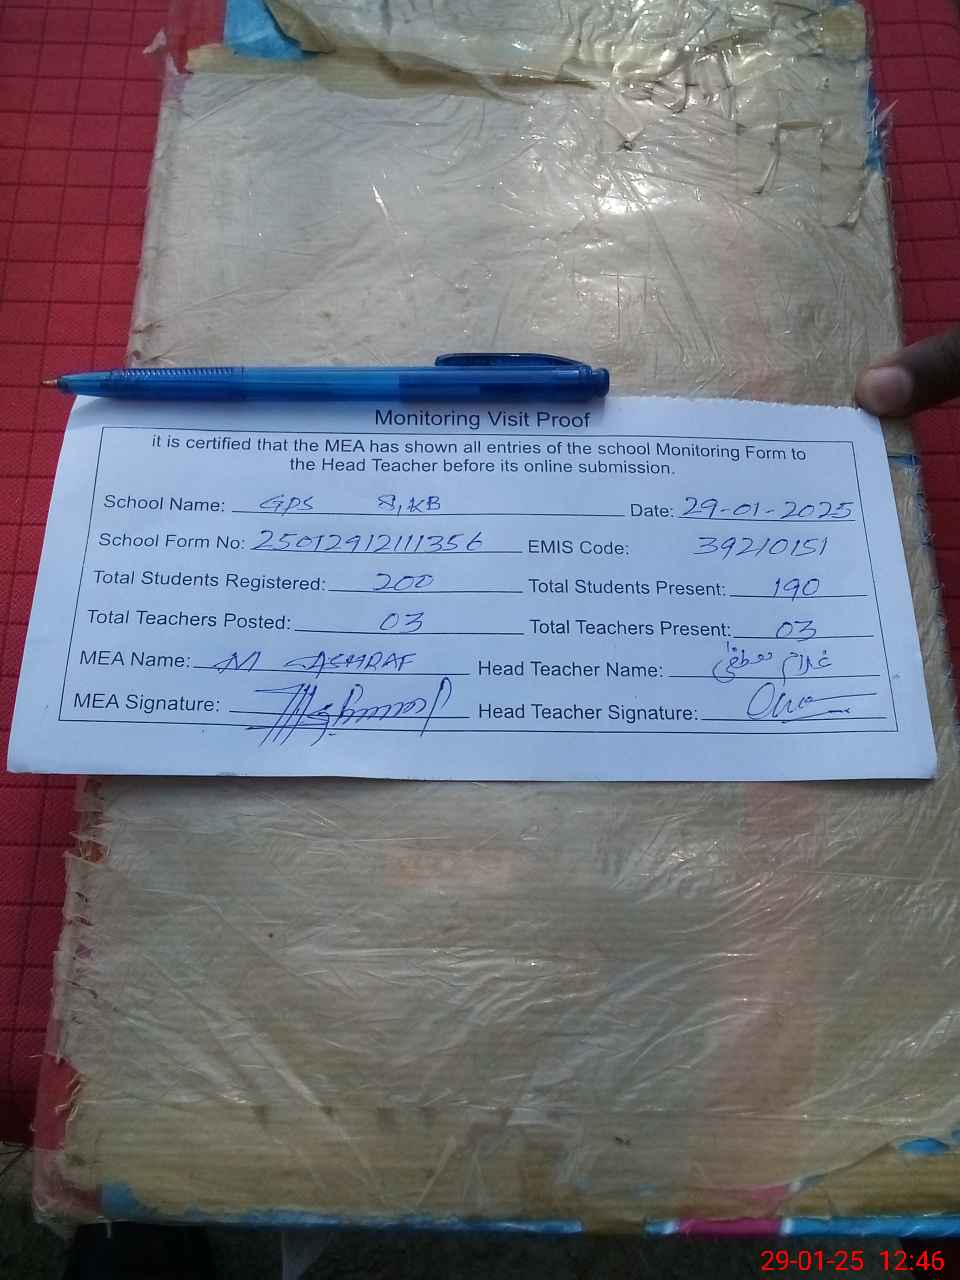 Monitoring Visit Proof
it is certified that the MEA has shown all entries of the school Monitoring Form to
the Head Teacher before its online submission.
School Name: GPS 8,KB Date: 29-01-2025
School Form No: 25012912111356 EMIS Code: 39210151
Total Students Registered: 200 Total Students Present: 190
Total Teachers Posted: 03 Total Teachers Present: 03
MEA Name: M ASHRAF Head Teacher Name: غلام مصطفی
MEA Signature: Head Teacher Signature:
29-01-25 12:46